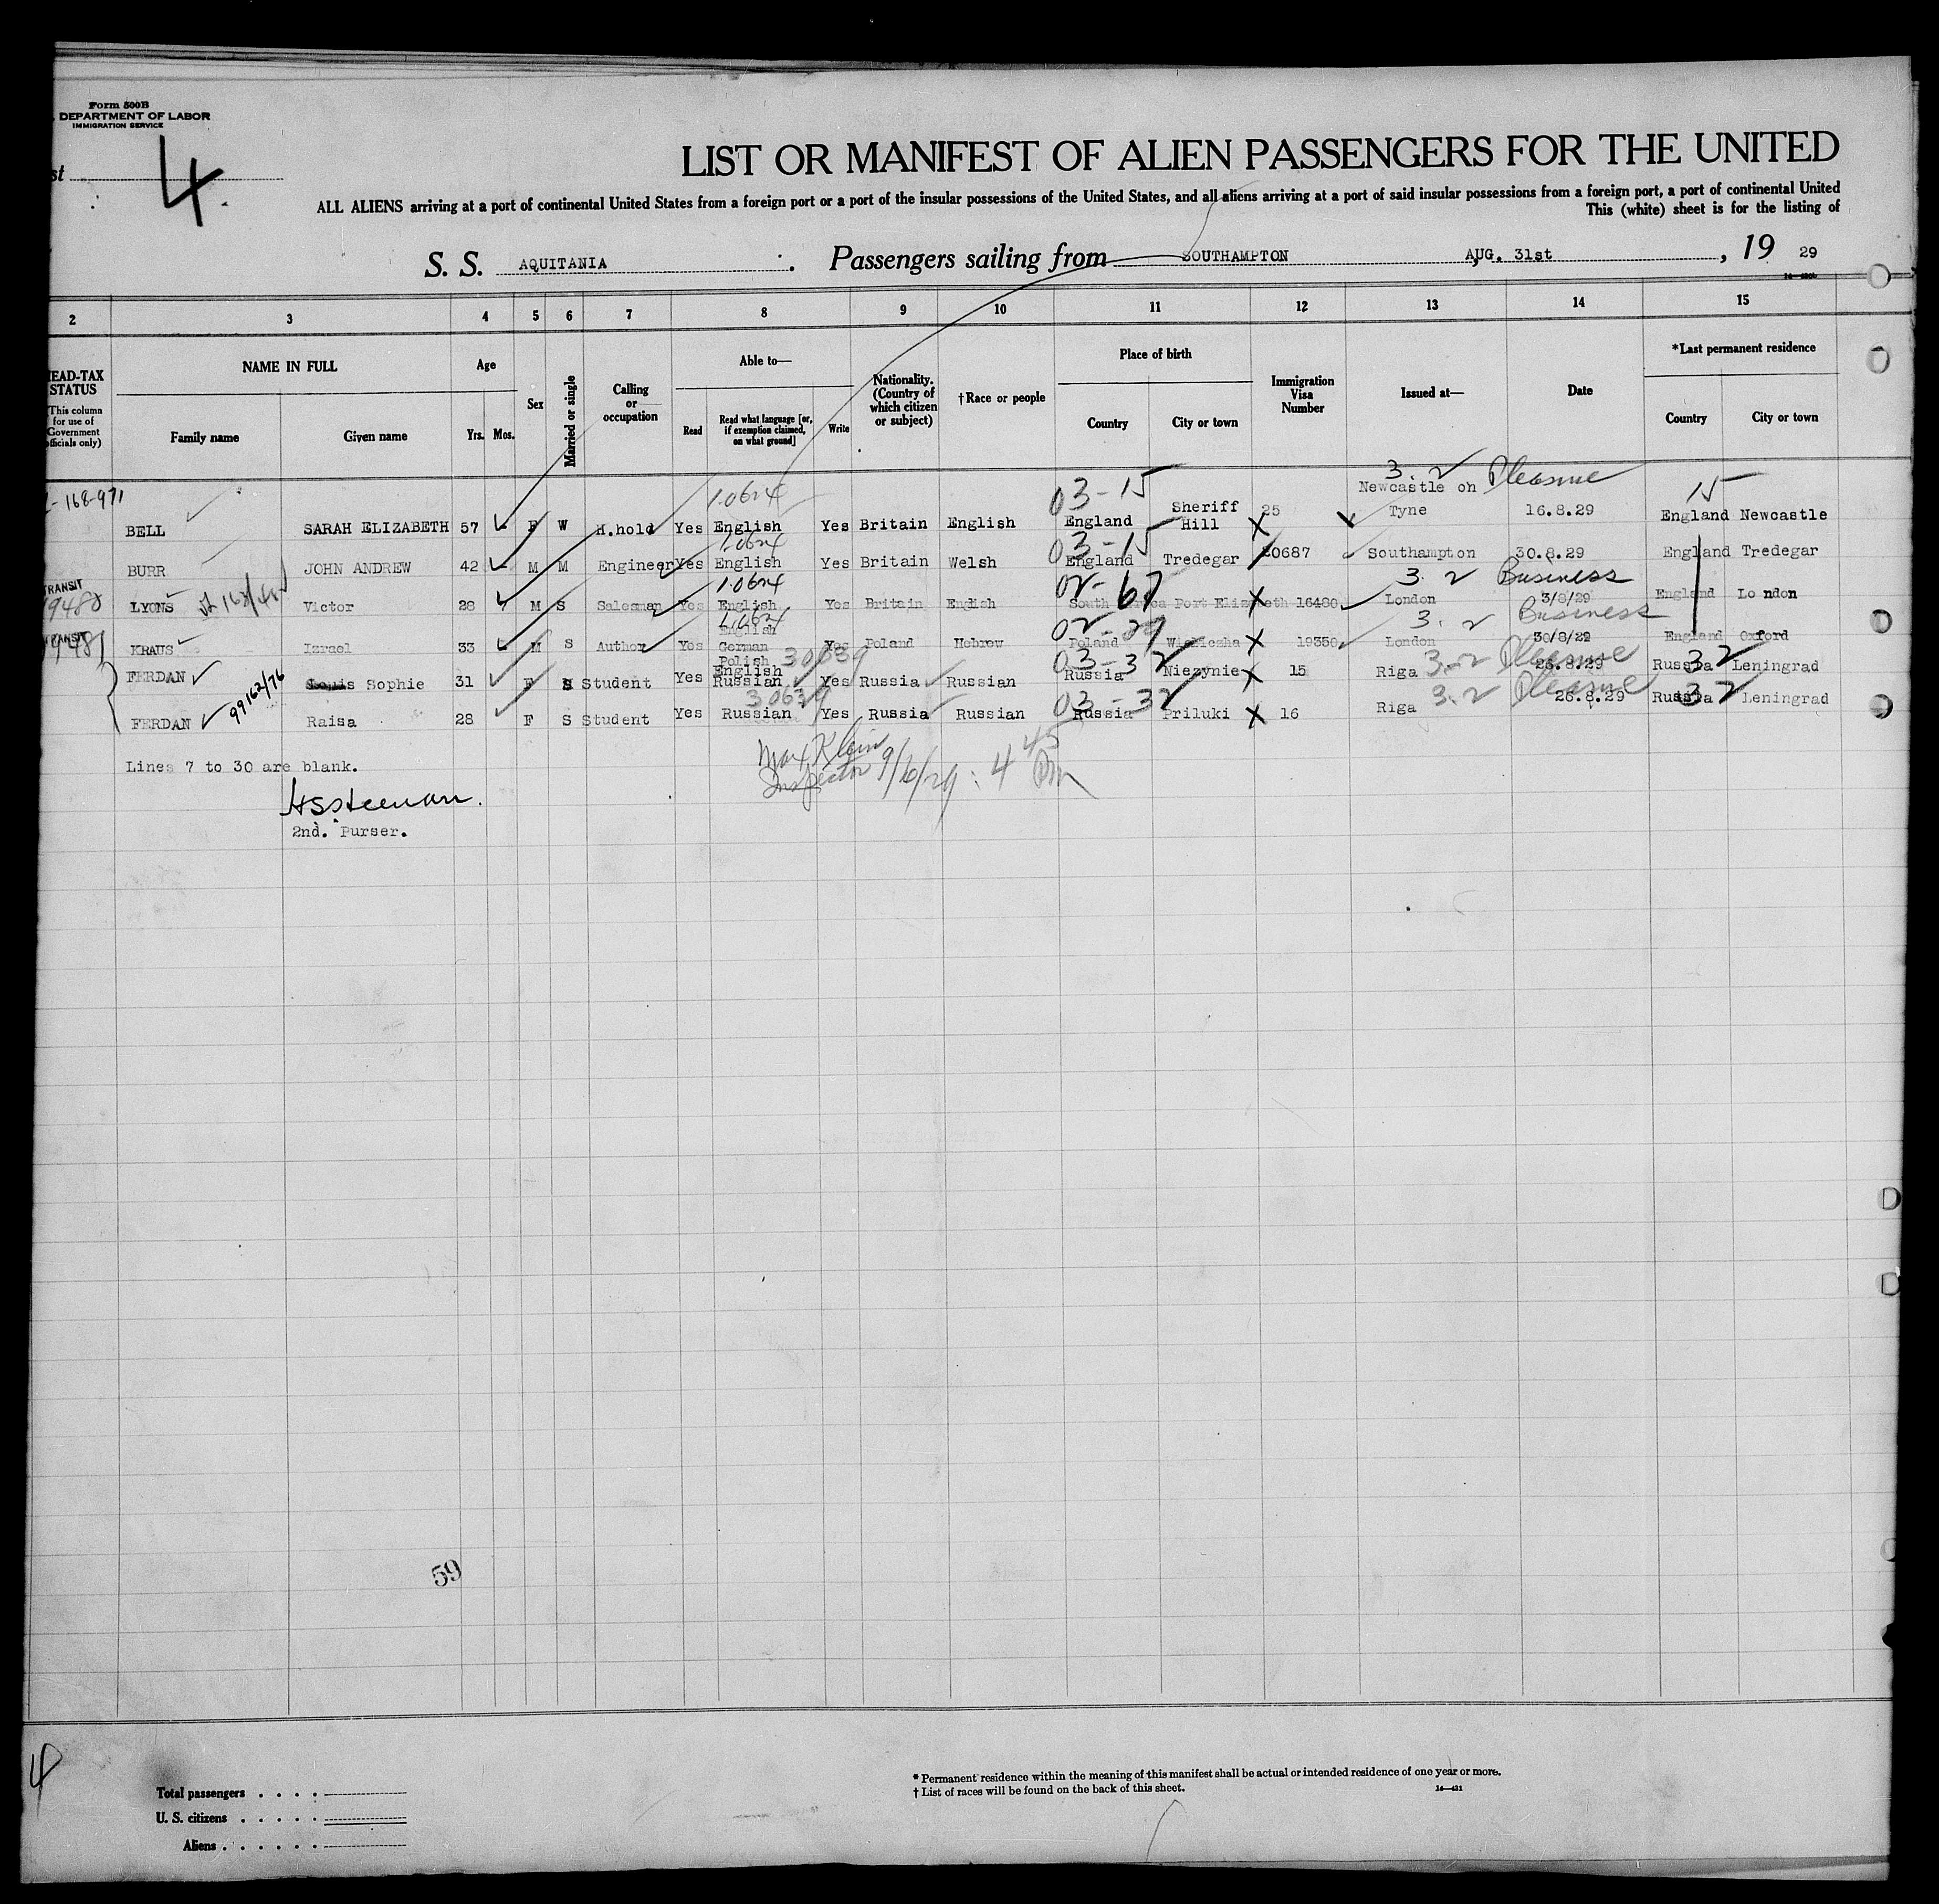 Form 500B
DEPARTMENT OF LABOR
IMMIGRATION SERVICE
st 4
LIST OR MANIFEST OF ALIEN PASSENGERS FOR THE UNITED
ALL ALIENS arriving at a port of continental United States from a foreign port or a port of the insular possessions of the United States, and all aliens arriving at a port of said insular possessions from a foreign port, a port of continental United
This (white) sheet is for the listing of
S. S. AQUITANIA Passengers sailing from SOUTHAMPTON AUG. 31st , 19 29
2 3 4 5 6 7 8 9 10 11 12 13 14 15
HEAD-TAX STATUS (This column for use of Government officials only)
NAME IN FULL Family name Given name
Age Yrs. Mos.
Sex
Married or single
Calling or occupation
Able to— Read Read what language [or, if exemption claimed, on what ground] Write
Nationality. (Country of which citizen or subject)
†Race or people
Place of birth Country City or town
Immigration Visa Number
Issued at—
Date
*Last permanent residence Country City or town
168-971 10624 03-15 3.2 Pleasure 15
BELL SARAH ELIZABETH 57 F W H.hold Yes English Yes Britain English England Sheriff Hill 25 Newcastle on Tyne 16.8.29 England Newcastle
10624 03-15
BURR JOHN ANDREW 42 M M Engineer Yes English Yes Britain Welsh England Tredegar 20687 Southampton 30.8.29 England Tredegar
TRANSIT 10624 02-67 3.2 Business
LYONS Victor 28 M S Salesman Yes English Yes Britain English South Africa Port Elizabeth 16480 London 3/8/29 England London
TRANSIT 10624 02-29 3.2 Business
KRAUS Izrael 33 M S Author Yes English German Polish Yes Poland Hebrew Poland 19350 London 30/8/29 England Oxford
30639 03-32 3.2 Pleasure 32
FERDAN Sophie 31 F S Student Yes English Russian Yes Russia Russian Russia Niezynie 15 Riga 26.8.29 Russia Leningrad
99162/76 30639 03-32 3.2 Pleasure 32
FERDAN Raisa 28 F S Student Yes Russian Yes Russia Russian Russia Priluki 16 Riga 26.8.29 Russia Leningrad
Lines 7 to 30 are blank.
Max Klein
Inspector 9/6/29 : 4 45 PM
2nd. Purser.
59
4
* Permanent residence within the meaning of this manifest shall be actual or intended residence of one year or more.
† List of races will be found on the back of this sheet. 14—421
Total passengers . . . .
U. S. citizens . . . . .
Aliens . . . . . .